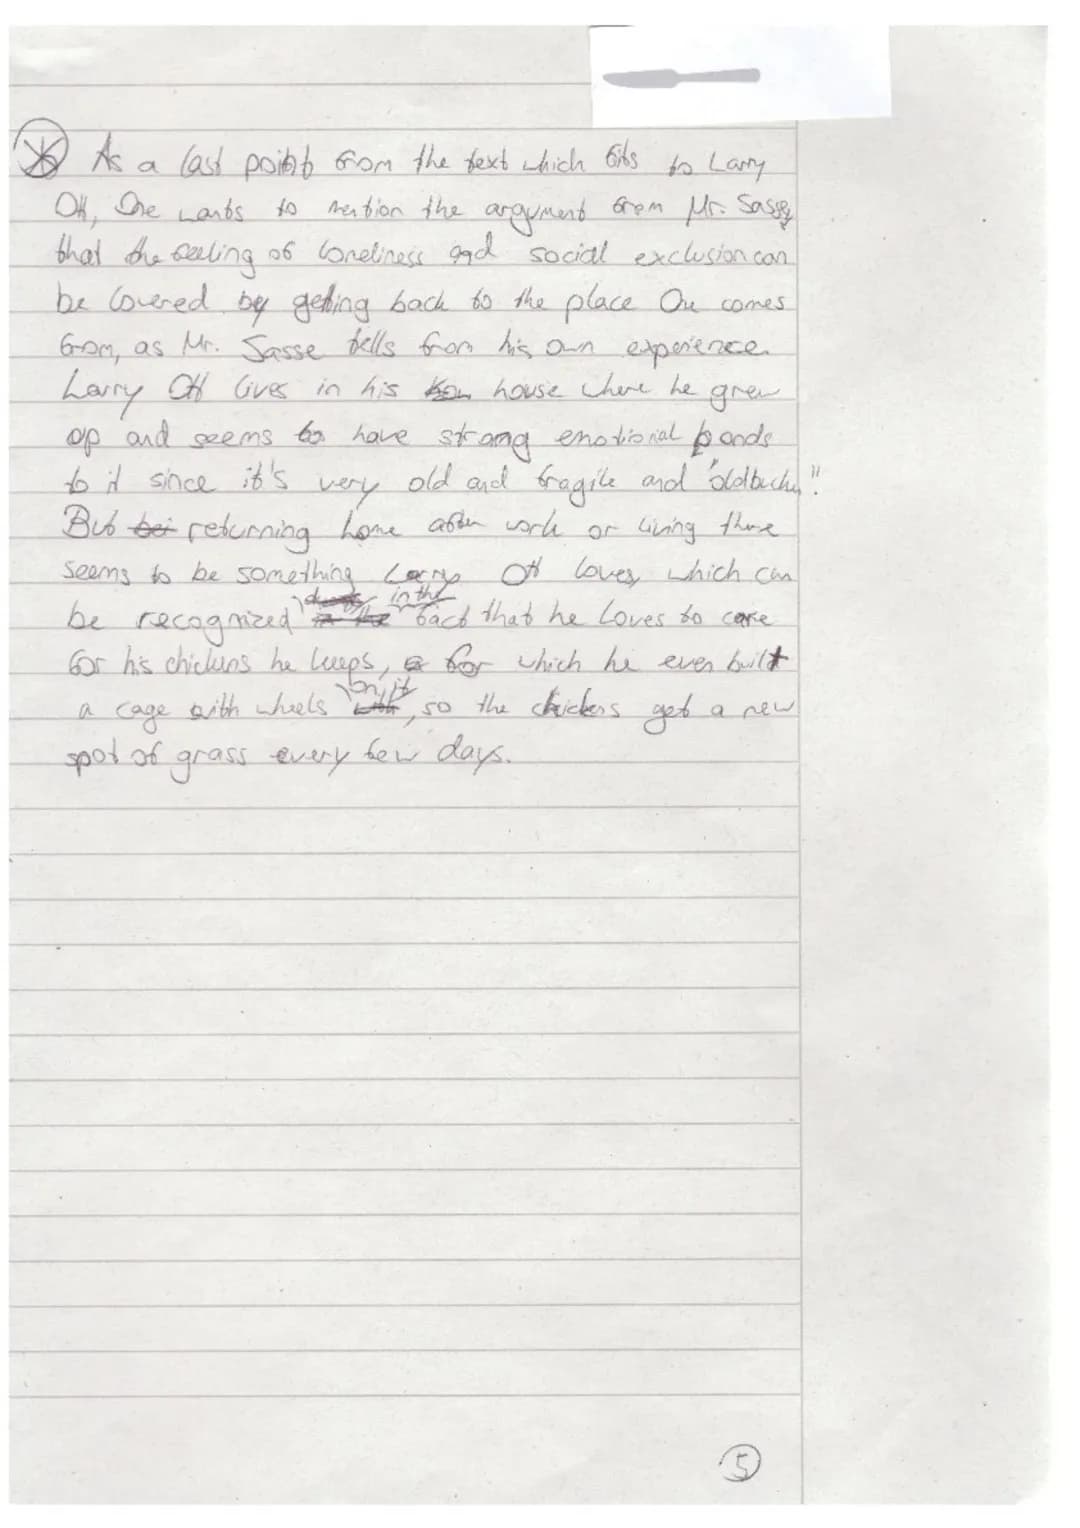 As a last point from the text which fits to Larry
Ott, One wants to mention the argument from Mr. Sasse,
that the feeling of loneliness and social exclusion can
be lovered by getting back to the place One comes
from, as Mr. Sasse tells from his own experience.
Larry Ott lives in his house where he grew
up and seems to have strong emotional bonds
to it since it's very old and fragile and "oldbucky"!
But returning home after work or living there
seems to be something Larry Ott loves, which can
be recognized in the fact that he loves to care
for his chickens he keeps, for which he even built
a cage with wheels on it, so the chickens get a new
spot of grass every few days.
5